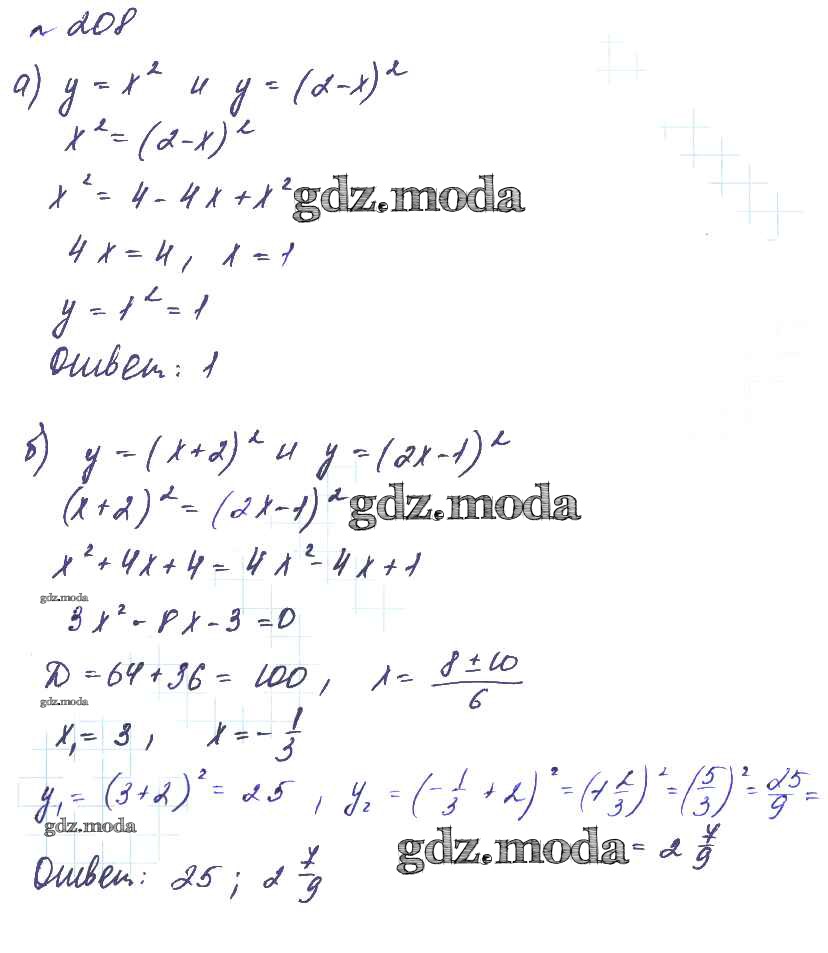 № 208
а) y = x² и y = (2-x)²
x² = (2-x)²
x² = 4 - 4x + x² gdz.moda
4x = 4, x = 1
y = 1² = 1
Ответ: 1
б) y = (x+2)² и y = (2x-1)²
(x+2)² = (2x-1)² gdz.moda
x² + 4x + 4 = 4x² - 4x + 1
gdz.moda
3x² - 8x - 3 = 0
D = 64 + 36 = 100, x = (8 ± 10)/6
gdz.moda
x₁ = 3, x = -1/3
y₁ = (3+2)² = 25, y₂ = (-1/3 + 2)² = (1 2/3)² = (5/3)² = 25/9 =
gdz.moda
gdz.moda = 2 7/9
Ответ: 25; 2 7/9